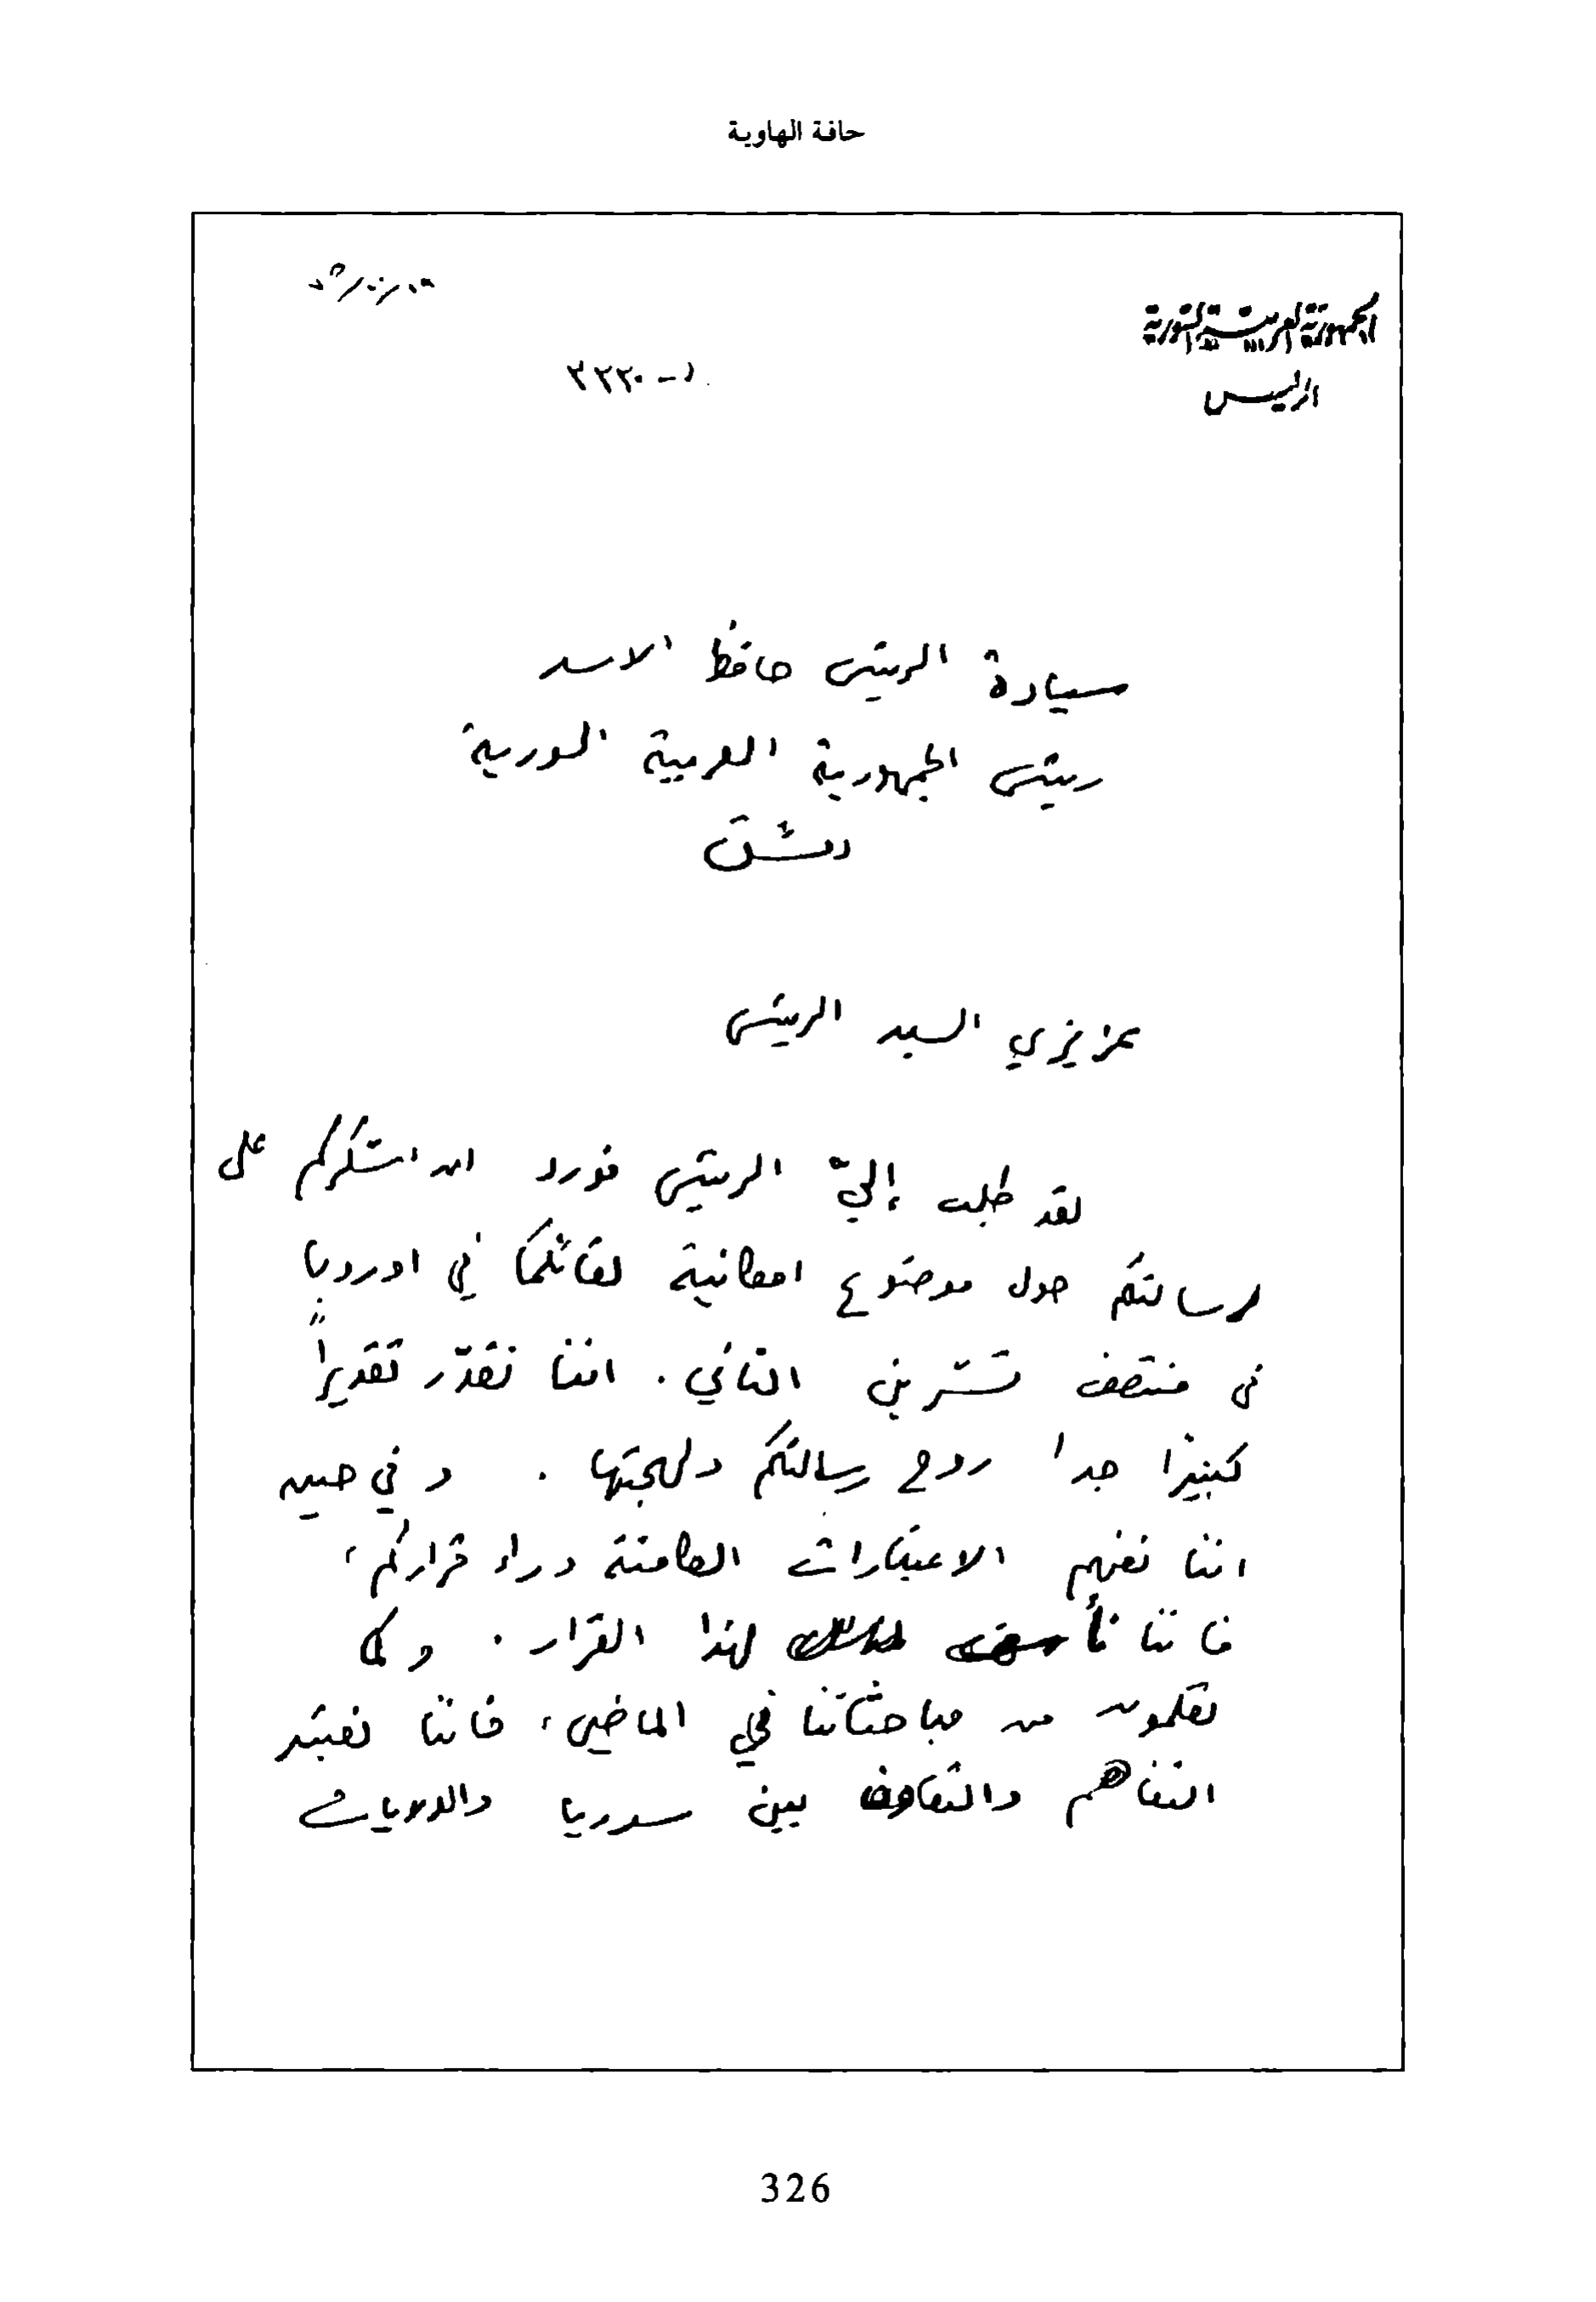 حافة الهاوية
الجمهورية العربية السورية
الرئيس
سيادة الرئيس حافظ الاسد
رئيس الجمهورية العربية السورية
دمشق
عزيزي السيد الرئيس
لقد طلب إليّ الرئيس فورد ان اشكركم على
رسالتكم حول موضوع امكانية لقائكما في اوروبا
في منتصف تشرين الثاني . اننا نقدّر تقديراً
كبيرا جدا روح رسالتكم ولهجتها . و في حين
اننا نفهم الاعتبارات الكامنة وراء قراركم ،
فاننا نأسف لهذا القرار . وكما
تعلمون من مباحثاتنا في الماضي ، فاننا نعتبر
التفاهم والتعاون بين سوريا والولايات
326